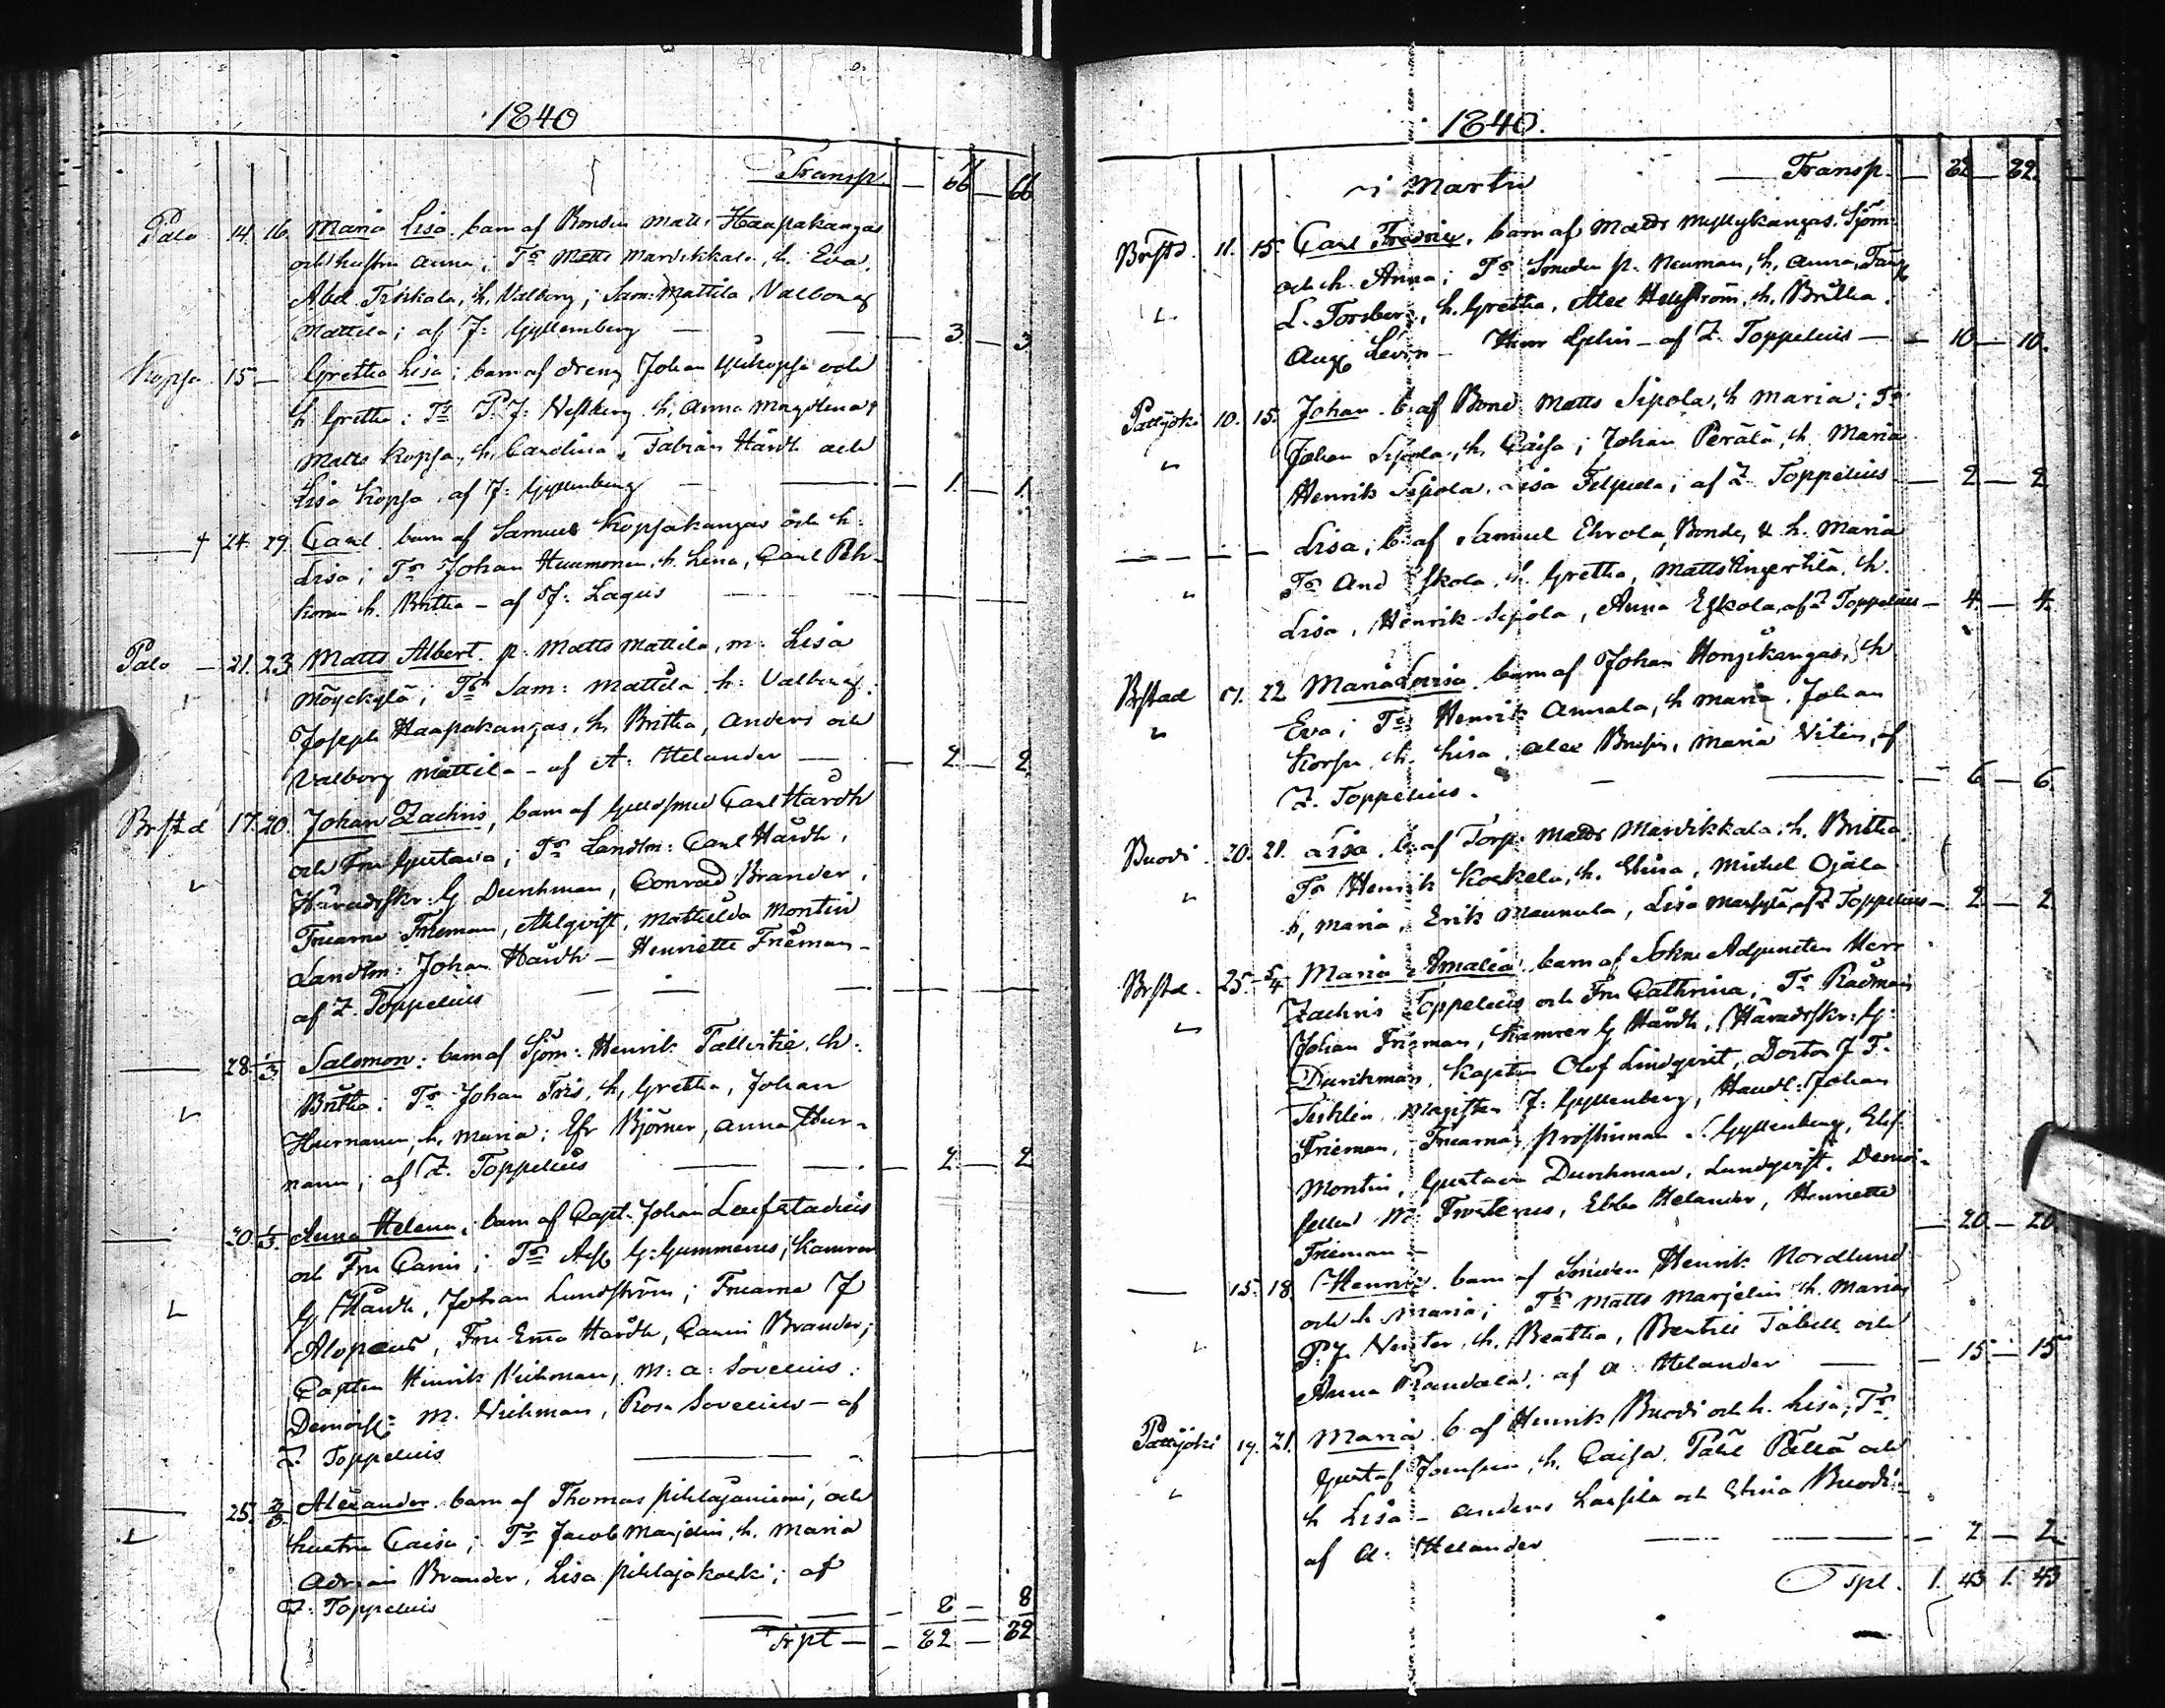 1840
Transp. — 66 — 66
Palo 14. 16. Maria Lisa. barn af Bonden Matts Haapakangas
och hustru Anna; Ts Matts Marttikkala, h. Eva.
Abel Tiskala, h. Valborg; Sam: Mattila, Valborg
Mattila; af J: Gyllenberg — — 3 — 3
Kopsa 15. — Gretha Lisa; barn af dreng Johan Ylikopsa och
h Gretha: Ts P. J: Vestberg h. Anna Magdlena
Matts Kopsa, h. Carolina, Fabian Hårdh och
Lisa Kopsa. af J: Gyllenberg — — 1. — 1.
— 24. 29. Carl. barn af Samuel Kopsakangas och h.
Lisa; Ts Johan Huumonen. h. Lena, Carl Peh-
konen h. Britha — af J: Lagus — —
Palo — 21. 23 Matts Albert. p: Matts Mattila, m: Lisa
Möyckylä; Ts Sam: Mattila h: Valborg.
Joseph Haapakangas, h. Britha, Anders och
Valborg Mattila — af A: Helander — — 2 — 2.
Brstd 17. 20. Johan Zachris, barn af Guldsmed Carl Hårdh
och Fru Gustava; Ts Landtm: Carl Hårdh,
Häradsskr: G Durchman, Conrad Brander,
Fruarna Frieman, Ahlqvist, Mathilda Montin
Landtm: Johan Hårdh — Henriette Frieman —
af Z. Toppelius — — —
— 28. 1/3 Salomon: barn af Sjöm: Henrik Tallvitie, h:
Britha: Ts Johan Fris, h, Gretha, Johan
Hurnanen, h. Maria; Efr Björner, Anna Hur-
nanen; af Z. Toppelius — — 2 — 2
— 20. 1/3. Anna Helena; barn af Capt. Johan Leufstadius
och Fru Carin; Ts Ass G: Gummerus, Kamrer
G Hårdh, Johan Lundström; Fruarna J
Alopæus, Fru Emma Hårdh, Carin Brander;
Capten Henrik Wichman, M: A: Sovelius:
Demoisl: M. Wichman, Rosa Sovelius — af
Z. Toppelius — —
— 25. 2/3. Alexander. barn af Thomas Pihlajaniemi, och
hustru Caisa; Ts Jacob Marjelin, h. Maria
Adrian Brander, Lisa Pihlajakoski; af
Z: Toppelius — — 8 — 8
Trpt — — 82 — 82
1840.
i Martii — Transp. — 82 — 82.
Brstd. 11. 15. Carl Fredric. barn af Matts Myllykangas. Sjöm:
och h. Anna; Ts Smeden P. Neuman, h, Anna,
L. Forsberg, h. Gretha. Alex Hellström, h. Britha.
Aug Levin — — af Z. Toppelius — — 10 — 10.
Pattijoki 10. 15. Johan. b: af Bond: Matts Sipola, h Maria; Ts
Johan Sipola, h. Caisa; Johan Perälä, h. Maria
Henrik Sipola. Lisa; af Z Toppelius — 2 — 2
— — — Lisa; b: af Samuel Ehrola, Bonde, & h. Maria
Ts And Eskola, h. Gretha, Matts Angerkilä, h.
Lisa, Henrik Sipola, Anna Eskola, af Z Toppelius — 4. — 4.
Brstad 17. 22 Maria Lovisa. barn af Johan Honzikangas, h
Eva; Ts Henrik Annala, h Maria. Johan
Korpa, h. Lisa. Alex, Maria Vitin, af
Z. Toppelius. — — — 6 — 6.
Buovi 20. 21. Lisa. b: af Torp: Matts Marttikkala, h. Britha.
Ts Henrik Koskela, h. Stina, Michel Ojala
h, Maria, Erik Maunula, Lisa, af Z Toppelius — 2. — 2.
Brstd. 25. 5/4 Maria Amalia. barn af Sokne Adjuncten Herr
Zachris Toppelius och Fru Cathrina, Ts Rådman
Johan Frieman, Kamrer G Hårdh, Häradsskr: G:
Durchman, Kapten Olof Lindqvist, Doctor J F.
Magister J: Gyllenberg, Handl: Johan
Frieman, Fruarna, Prostinnan S. Gyllenberg, Elis.
Montin, Gustava Durchman, Lundqvist. Demoi-
sellen W: Frosterus, Ebba Helander, Henriette
Frieman — — 20 — 20.
— 15. 18. Henric. barn af Smeden Henrik Nordlund
och h Maria; Ts Matts Marjelin, h. Maria
P. J. Venter, h. Beatha, Bertil Tabell och
Anna Randala. af A: Helander — — 15 — 15
Pattijoki 19. 21. Maria. b af Henrik Buovi och h. Lisa; Ts
Gustaf, h. Caisa. Påhl Pällä och
h Lisa — Anders Lassila och Stina Buovi —
af A: Helander — — — 2 — 2.
Trspt. 1. 43 1. 43